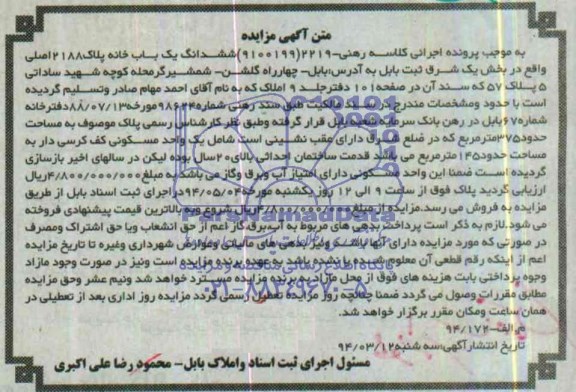 متن آگهی مزایده
به موجب پرونده اجرائی کلاسه رهنی-۲۲۱۹(۹۱۰۰۱۹۹)ششدانگ یک باب خانه پلاک۲۱۸۸اصلی
واقع در بخش یک شرق ثبت بابل به آدرس:بابل- چهارراه گلشن- شمشیرگرمحله کوچه شهید ساداتی
۵ پلاک ۵۷ که سند آن در صفحه۱۰۱ دفترجلد ۹ املاک که به نام آقای احمد مهام صادر وتسلیم گردیده
است با حدود ومشخصات مندرج در سند مالکیت طبق سند رهنی شماره۹۸۶۲۴مورخه۸۸/۰۷/۱۳دفترخانه
شماره۶۷بابل در رهن بانک سرمایه شعبه بابل قرار گرفته وطبق نظر کارشناس رسمی پلاک موصوف به مساحت
حدود۳۷۵مترمربع که در ضلع شرق دارای عقب نشینی است شامل یک واحد مسکونی کف کرسی دار به
مساحت حدود۱۴۵مترمربع می باشد قدمت ساختمان احداثی بالای۲۰سال بوده لیکن در سالهای اخیر بازسازی
گردیده است ضمنا این واحد مسکونی دارای امتیاز آب وبرق وگاز می باشد به مبلغ۴/۸۰۰/۰۰۰/۰۰۰ریال
ارزیابی گردید پلاک فوق از ساعت ۹ الی ۱۲ روز یکشنبه مورخه۹۴/۰۵/۰۴در اجرای ثبت اسناد بابل از طریق
مزایده به فروش می رسد.مزایده از مبلغ۴/۸۰۰/۰۰۰/۰۰۰ریال شروع وبه بالاترین قیمت پیشنهادی فروخته
می شود.لازم به ذکر است پرداخت بدهی های مربوط به آب،برق،گاز اعم از حق انشعاب ویا حق اشتراک ومصرف
در صورتی که مورد مزایده دارای آنها باشد ونیز بدهی های مالیاتی وعوارض شهرداری وغیره تا تاریخ مزایده
اعم از اینکه رقم قطعی آن معلوم شده یا نشده باشد به عهده برنده مزایده است ونیز در صورت وجود مازاد
وجوه پرداختی بابت هزینه های فوق از محل مازاد به برنده مزایده مسترد خواهد شد ونیم عشر وحق مزایده
مطابق مقررات وصول می گردد ضمنا چنانچه روز مزایده تعطیل رسمی گردد مزایده روز اداری بعد از تعطیلی در
همان ساعت ومکان مقرر برگزار خواهد شد.
م-الف-۹۴/۱۷۲
تاریخ انتشارآگهی:سه شنبه۹۴/۰۳/۱۲
مسئول اجرای ثبت اسناد واملاک بابل- محمود رضا علی اکبری
ParsNamadData
پایگاه اطلاع رسانی مناقصه و مزایده
۰۲۱-۸۸۳۴۹۶۷۰-۵